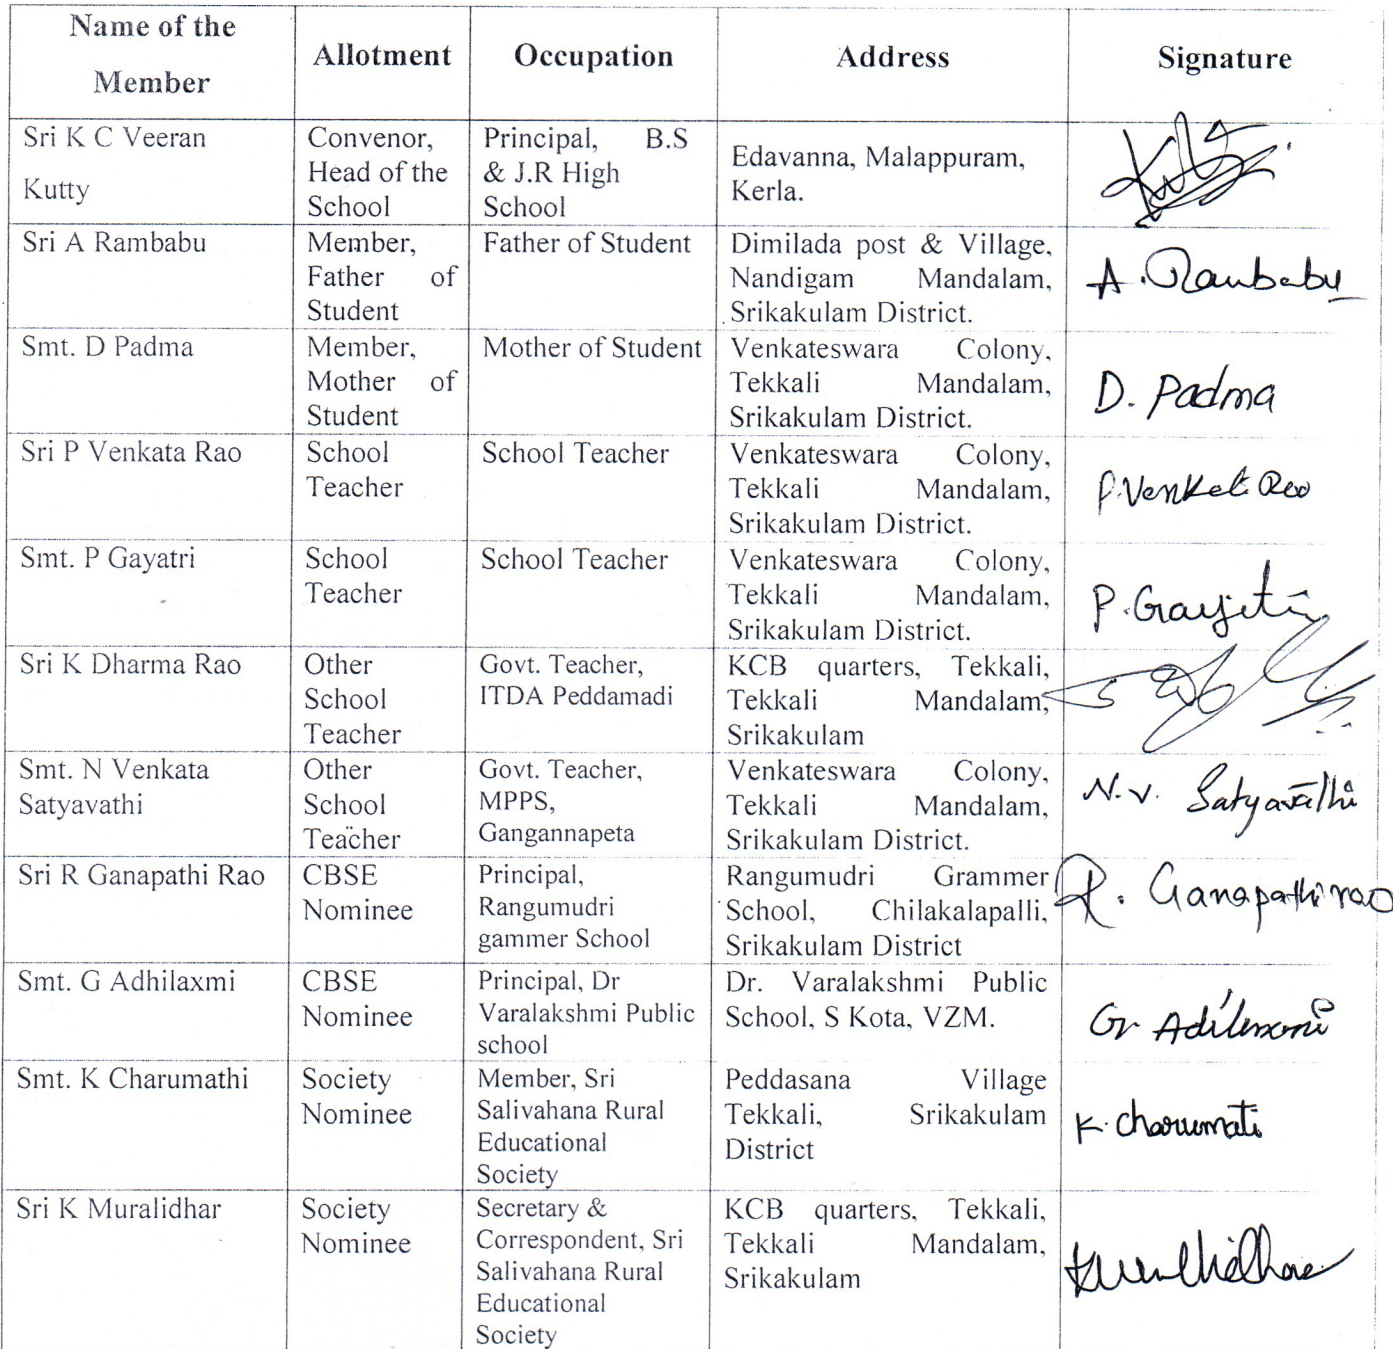 Name of the
Member
Allotment
Occupation
Address
Signature
Sri K C Veeran
Kutty
Convenor,
Head of the
School
Principal, B.S
& J.R High
School
Edavanna, Malappuram,
Kerla.
Sri A Rambabu
Member,
Father of
Student
Father of Student
Dimilada post & Village,
Nandigam Mandalam,
Srikakulam District.
A. Rambabu
Smt. D Padma
Member,
Mother of
Student
Mother of Student
Venkateswara Colony,
Tekkali Mandalam,
Srikakulam District.
D. Padma
Sri P Venkata Rao
School
Teacher
School Teacher
Venkateswara Colony,
Tekkali Mandalam,
Srikakulam District.
P. Venkat Rao
Smt. P Gayatri
School
Teacher
School Teacher
Venkateswara Colony,
Tekkali Mandalam,
Srikakulam District.
P. Gayatri
Sri K Dharma Rao
Other
School
Teacher
Govt. Teacher,
ITDA Peddamadi
KCB quarters, Tekkali,
Tekkali Mandalam,
Srikakulam
Smt. N Venkata
Satyavathi
Other
School
Teacher
Govt. Teacher,
MPPS,
Gangannapeta
Venkateswara Colony,
Tekkali Mandalam,
Srikakulam District.
N. V. Satyavathi
Sri R Ganapathi Rao
CBSE
Nominee
Principal,
Rangumudri
gammer School
Rangumudri Grammer
School, Chilakalapalli,
Srikakulam District
R. Ganapathi rao
Smt. G Adhilaxmi
CBSE
Nominee
Principal, Dr
Varalakshmi Public
school
Dr. Varalakshmi Public
School, S Kota, VZM.
G
Smt. K Charumathi
Society
Nominee
Member, Sri
Salivahana Rural
Educational
Society
Peddasana Village
Tekkali, Srikakulam
District
K. Charumati
Sri K Muralidhar
Society
Nominee
Secretary &
Correspondent, Sri
Salivahana Rural
Educational
Society
KCB quarters, Tekkali,
Tekkali Mandalam,
Srikakulam